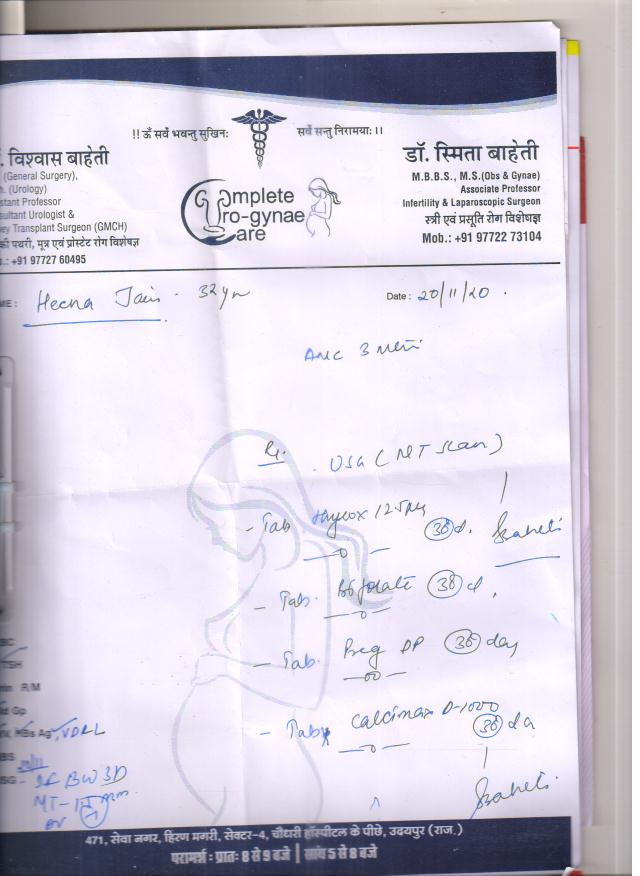 !! ॐ सर्वे भवन्तु सुखिनः
सर्वे सन्तु निरामयाः ।।
. विश्वास बाहेती
(General Surgery),
h. (Urology)
stant Professor
sultant Urologist &
ey Transplant Surgeon (GMCH)
की पथरी, मूत्र एवं प्रोस्टेट रोग विशेषज्ञ
.: +91 97727 60495
Complete
Uro-gynae
Care
डॉ. स्मिता बाहेती
M.B.B.S., M.S.(Obs & Gynae)
Associate Professor
Infertility & Laparoscopic Surgeon
स्त्री एवं प्रसूति रोग विशेषज्ञ
Mob.: +91 97722 73104
ME: Heena Jain - 32 yr
Date : 20/11/20.
ANC 3
Rx
USG (NT Scan)
- Tab 125 30 d.
Baheti
- Tab. d.
- Tab. DP day
- Tab Calcimax D-1000
Baheti
BC
TSH
R/M
d Gp
HBs Ag, VDRL
BS 20/11
SG -
471, सेवा नगर, हिरण मगरी, सेक्टर-4, चौधरी हॉस्पीटल के पीछे, उदयपुर (राज.)
परामर्श : प्रातः 8 से 9 बजे | सायं 5 से 8 बजे